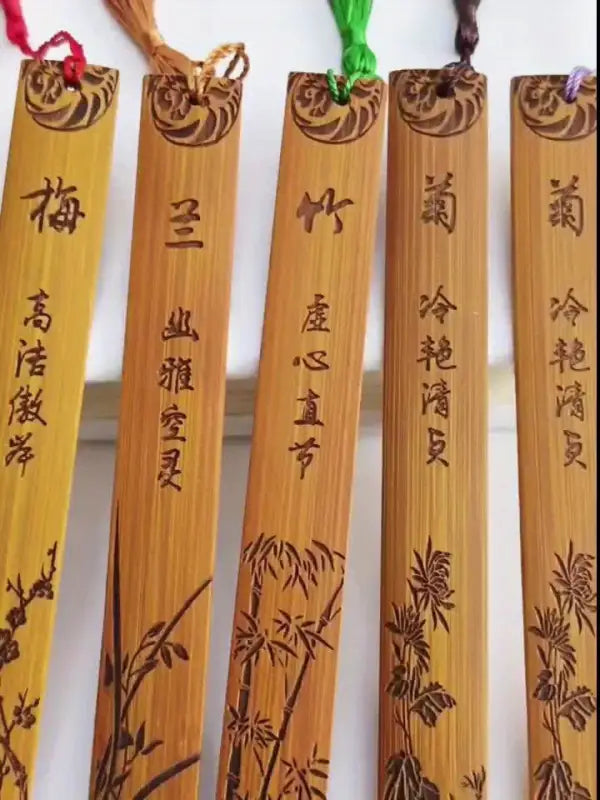 梅
高洁傲岸
兰
幽雅空灵
竹
虚心直节
菊
冷艳清贞
菊
冷艳清贞